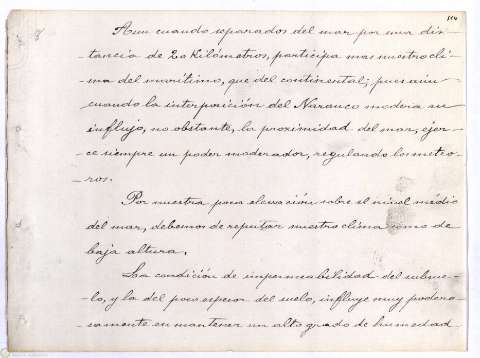 Aun cuando separados del mar por una dis-
-tancia de 20 Kilómetros, participa mas nuestro cli-
-ma del marítimo, que del continental; pues aún
cuando la interposición del Naranco modera su
influjo, no obstante, la proximidad del mar, ejer-
-ce siempre un poder moderador, regulando los meteo-
-ros.
Por nuestra poca elevación sobre el nivel médio
del mar, debemos de reputar nuestro clima como de
baja altura.
La condición de impermeabilidad del subsue-
-lo, y la del poco espesor del suelo, influye muy podero-
-samente en mantener un alto grado de humedad